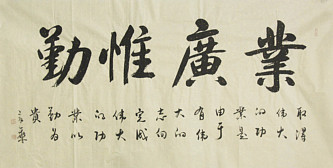 業廣惟勤
取得
伟大
的功
業是
由于
有伟
大的
志向
完成
伟大
的功
業以
勤为
貴